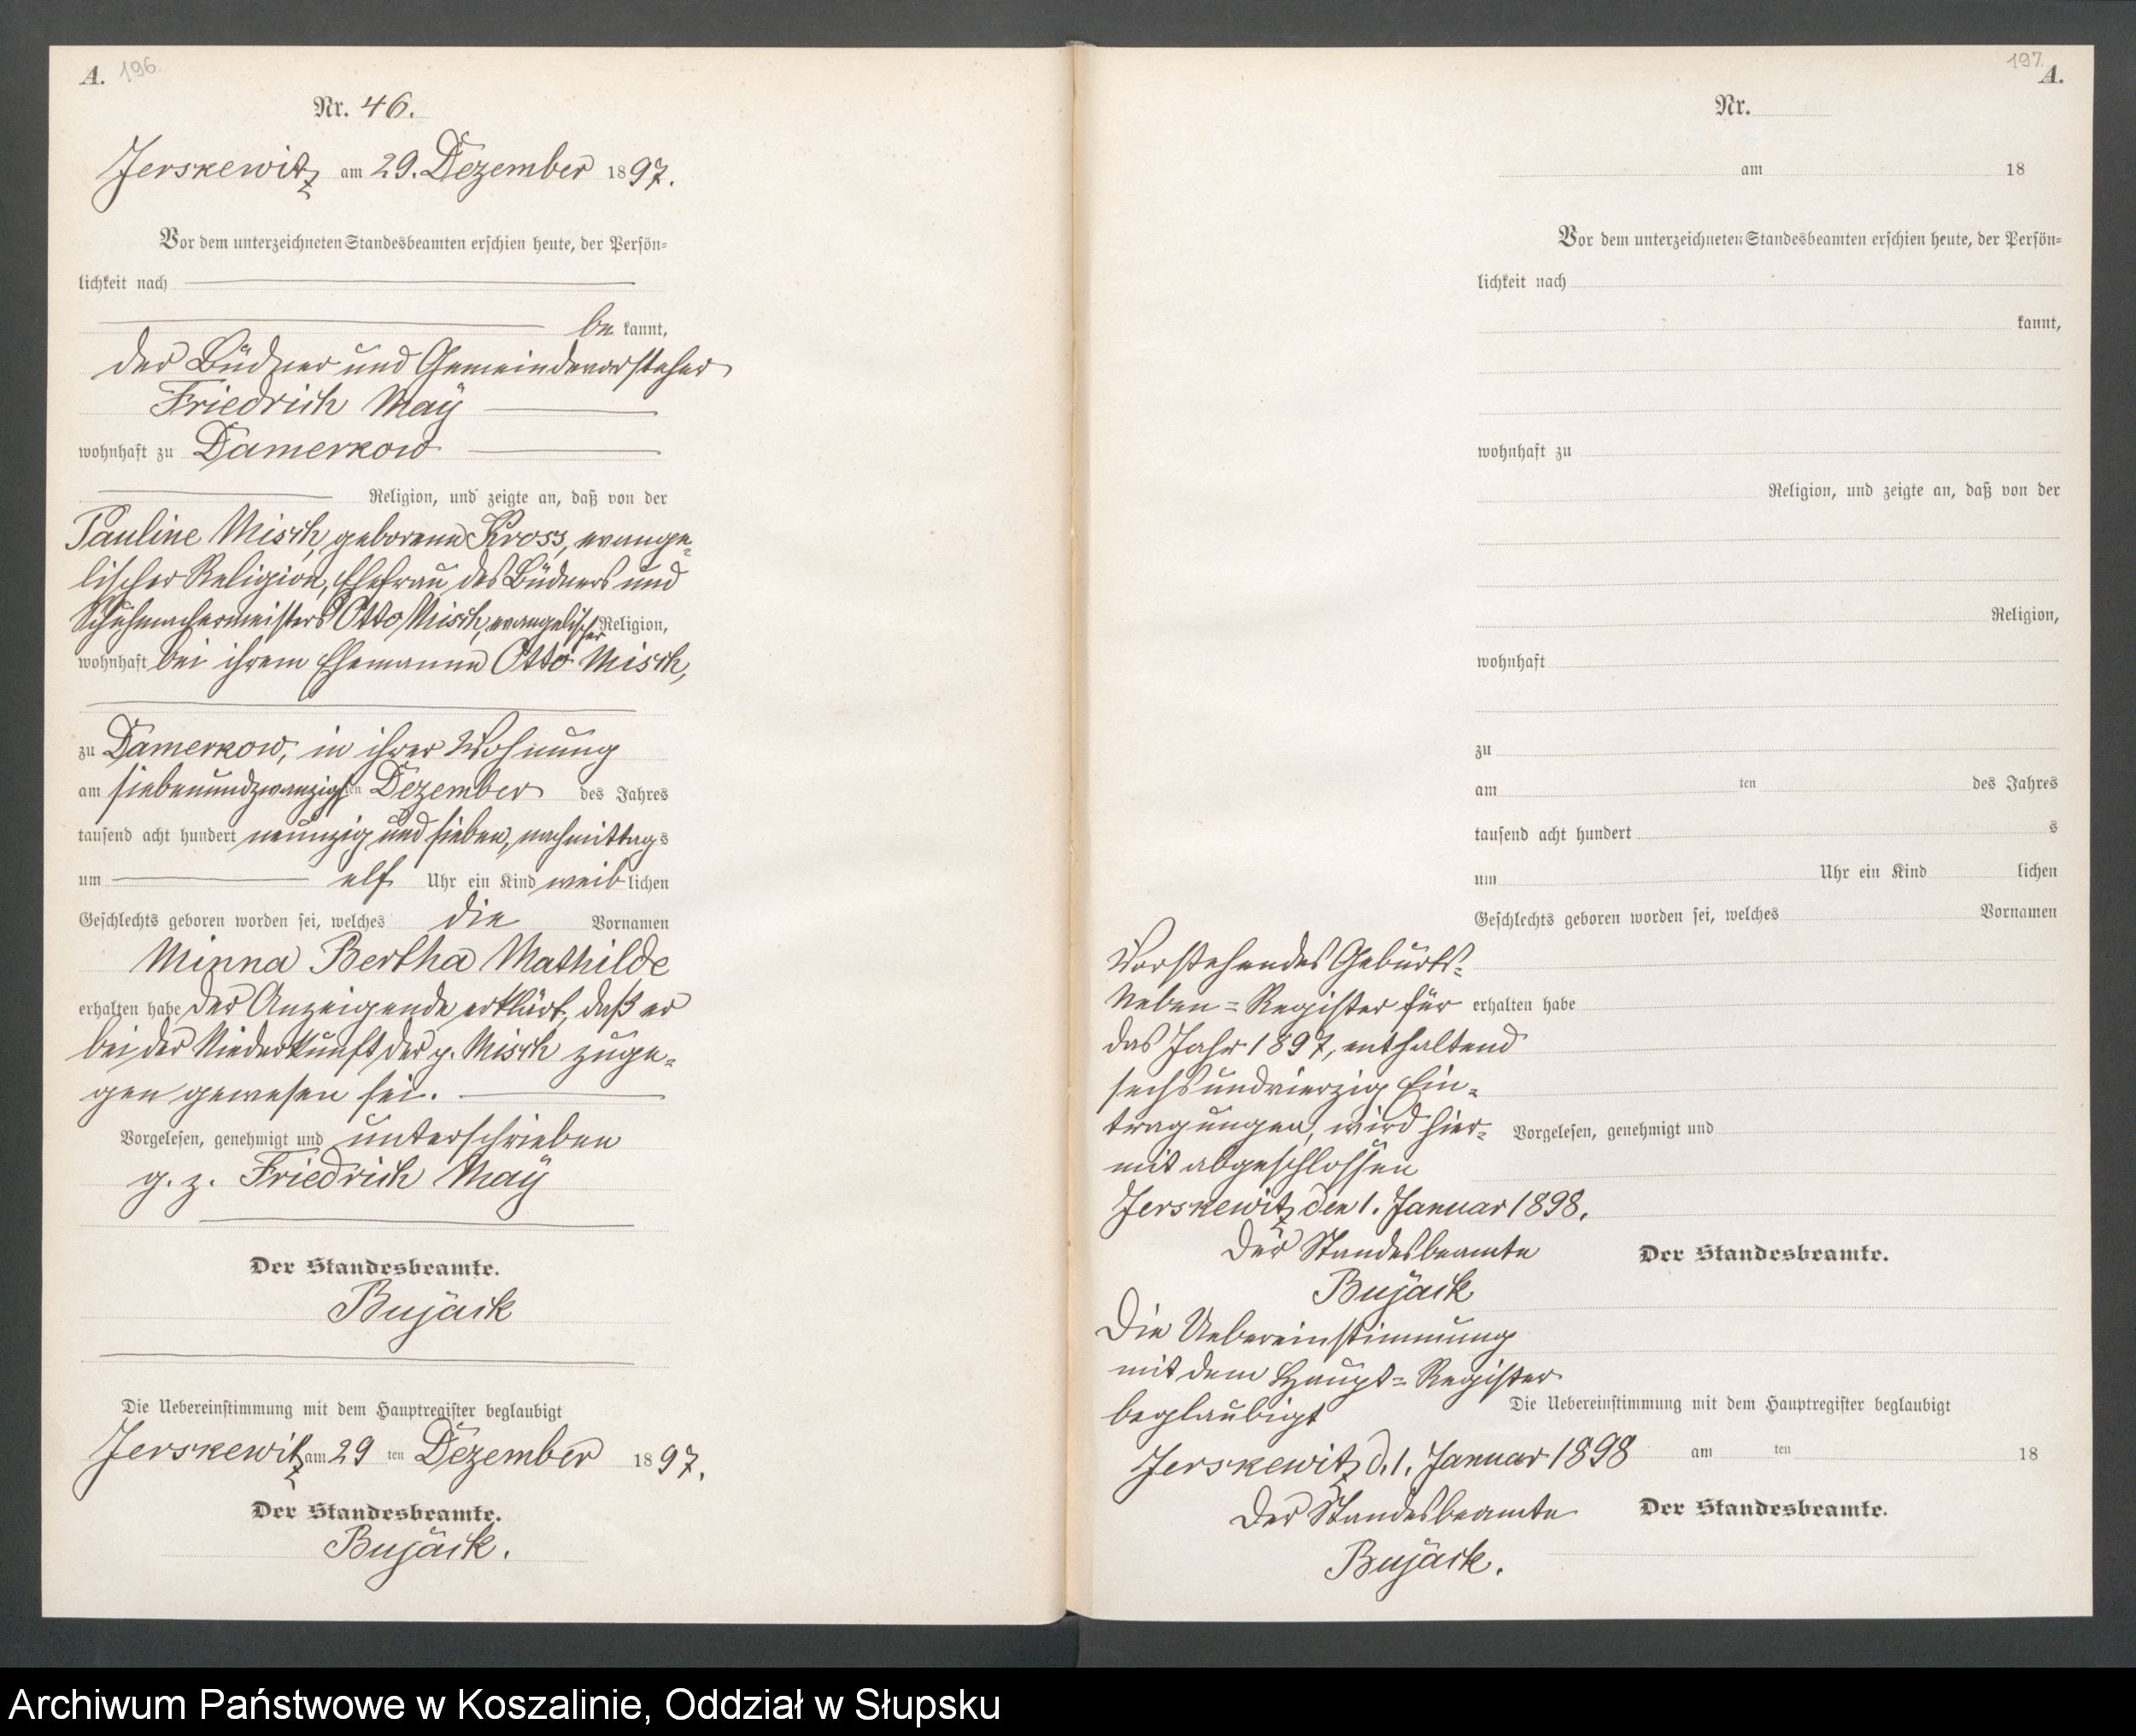 A. 196.
Nr. 46.
Jerskewitz am 29. Dezember 1897.
Vor dem unterzeichneten Standesbeamten erschien heute, der Persön-
lichkeit nach
be kannt,
der Büdner und Gemeindevorsteher
Friedrich Maÿ
wohnhaft zu Damerkow
Religion, und zeigte an, daß von der
Pauline Misch, geborene Kross, evange-
lischer Religion, Ehefrau des Büdners und
Schuhmachermeisters Otto Misch, evangelischer Religion,
wohnhaft bei ihrem Ehemanne Otto Misch,
zu Damerkow, in ihrer Wohnung
am siebenundzwanzigsten Dezember des Jahres
tausend acht hundert neunzig und sieben, nachmittags
um elf Uhr ein Kind weiblichen
Geschlechts geboren worden sei, welches die Vornamen
Minna Bertha Mathilde
erhalten habe der Anzeigende erklärt, daß er
bei der Niederkunft der p. Misch zuge-
gen gewesen sei.
Vorgelesen, genehmigt und unterschrieben
g. z. Friedrich Maÿ
Der Standesbeamte.
Bujack
Die Uebereinstimmung mit dem Hauptregister beglaubigt
Jerskewitz am 29 ten Dezember 1897.
Der Standesbeamte.
Bujack.
197. A.
Nr.
am 18
Vor dem unterzeichneten Standesbeamten erschien heute, der Persön-
lichkeit nach
kannt,
wohnhaft zu
Religion, und zeigte an, daß von der
Religion,
wohnhaft
zu
am ten des Jahres
tausend acht hundert s
um Uhr ein Kind lichen
Geschlechts geboren worden sei, welches Vornamen
Vorstehendes Geburts-
Neben-Register für erhalten habe
das Jahr 1897, enthaltend
sechsundvierzig Ein-
tragungen, wird hier- Vorgelesen, genehmigt und
mit abgeschlossen
Jerskewitz den 1. Januar 1898.
Der Standesbeamte Der Standesbeamte.
Bujack
Die Uebereinstimmung
mit dem Haupt-Register
beglaubigt Die Uebereinstimmung mit dem Hauptregister beglaubigt
Jerskewitz d. 1. Januar 1898 am ten 18
Der Standesbeamte Der Standesbeamte.
Bujack.
Archiwum Państwowe w Koszalinie, Oddział w Słupsku